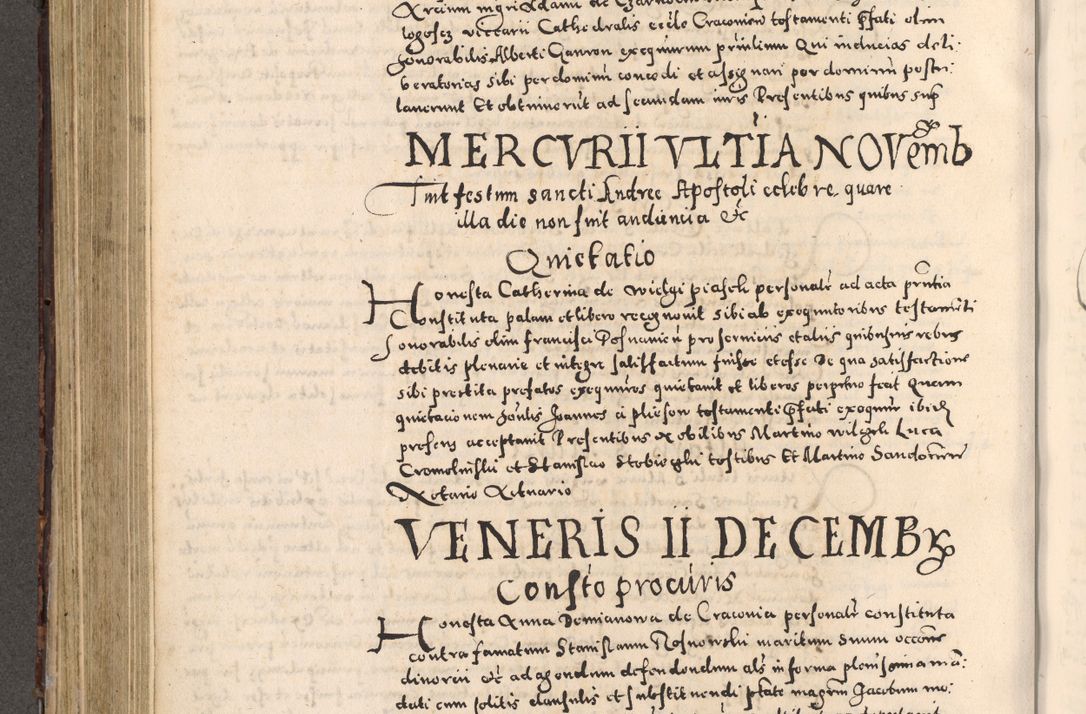 logosez vicarii Cathedralis eccle Cracovien testamenti pfati olim
honorabilis Alberti Gawron exequutorum primum Qui inducias deli-
beratorias sibi per dominum concedi et assignari per dominum postu-
laverunt Et obtinuerut ad secundam iuris Presentibus quibus sup
MERCVRII VLTIA NOVemb
Fuit festum sancti Andree Apostoli celebre, quare
illa die non fuit audientia &c
Quietatio
Honesta Catherina de personalr ad acta pntia
Constituta palam et libero recognovit sibi ab exequutoribus testamnti
honorabilis olim Francisci Posnanien pro serviciis et aliis quibusvis rebus
debitis plenarie et integre satisfactum fuisse et esse De qua satisffactione
sibi prestita prefatos exequutores quietavit et liberos perpetuo fecit Quam
quietacionem Joannes testamenti pfati exequutor ibidem
presens acceptavit Presentibus nobilibus Martino Luca
et Stanislao testibus Et Martino
Notario Actuario
VENERIS II DECEMBR
Consto procuris
Honesta Anna Demianowa de Cracovia personalr constituta
contra famatum Stanislaum Rosnowski maritum suum occone
divorcii &c ad agendum defendendum als in forma plenissima man-
dati cum solitis clausulis et substituendi ptate magrm Jacobum